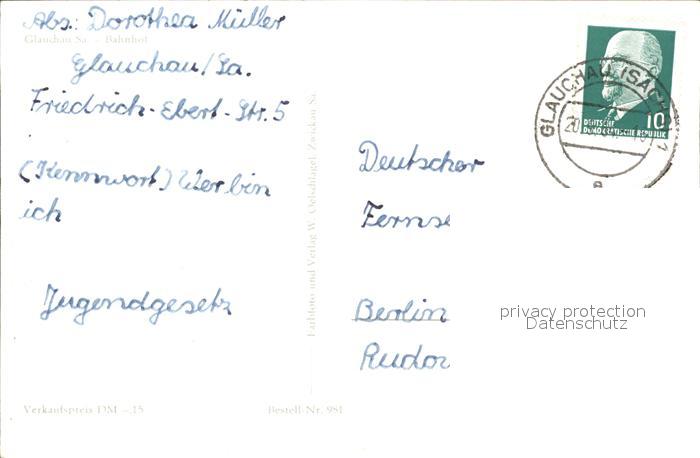 Abs.: Dorothea Müller
Glauchau Sa. - Bahnhof
Glauchau/Sa.
Friedrich-Ebert-Str. 5
(Kennwort) Wer bin
ich
Jugendgesetz
Verkaufspreis DM -.15
Bestell-Nr. 981
Farbfoto und Verlag W. Oelschlägel, Zwickau Sa.
GLAUCHAU (SACHS) 1
DEUTSCHE
DEMOKRATISCHE REPUBLIK
10
Deutscher
Fernse
Berlin
privacy protection
Datenschutz